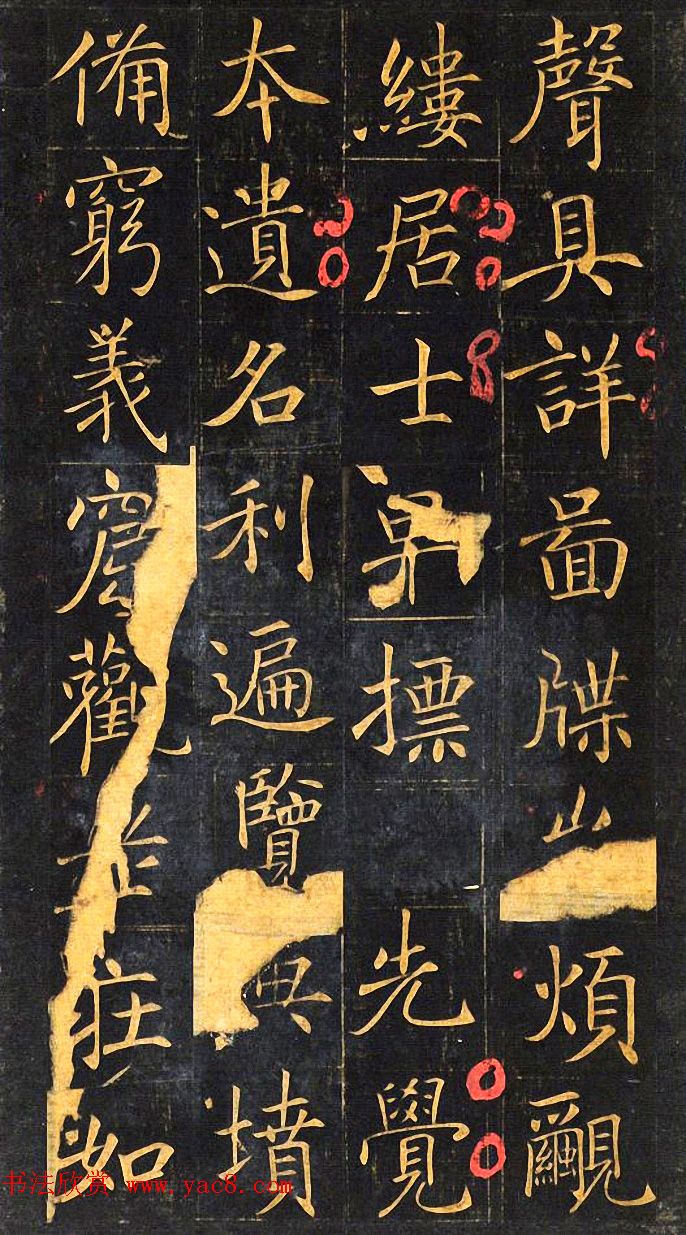 聲具詳圖牒岂煩覼
縷居士早標先覺
本遺名利遍覽典墳
備窮義窟觀老莊如
书法欣赏 www.yac8.com